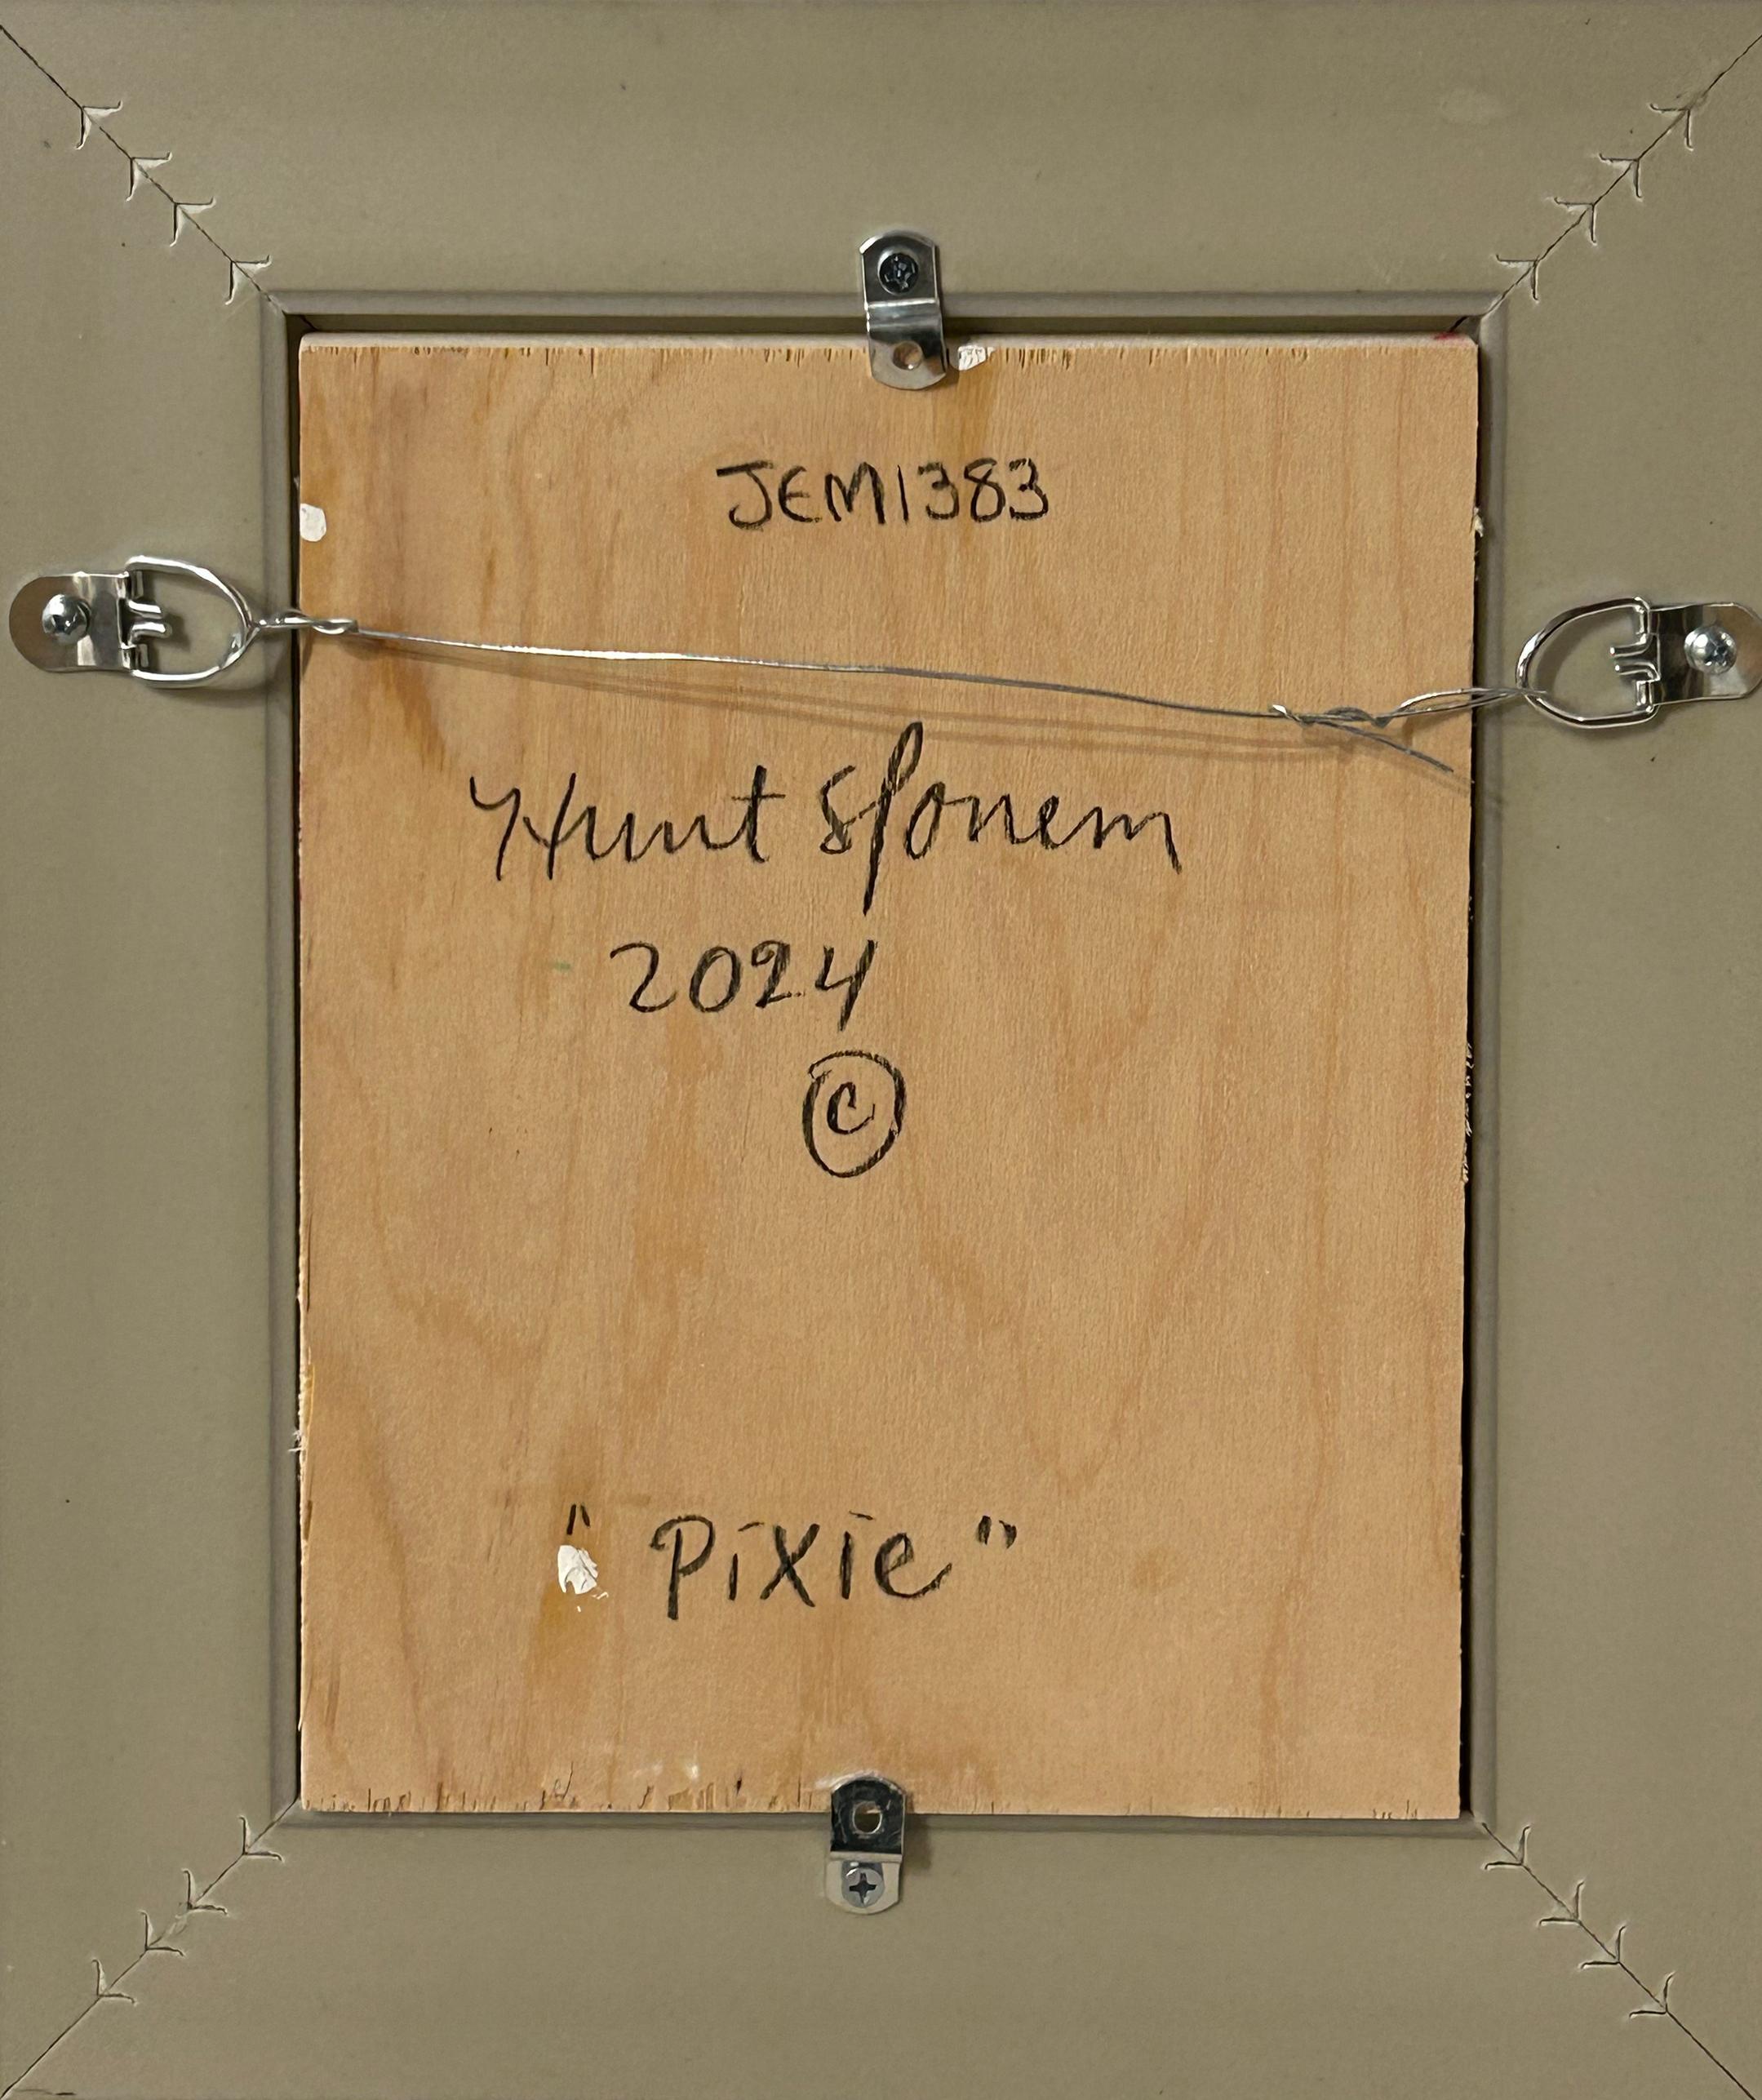 JEM1383
Hunt Slonem
2024
©
"Pixie"